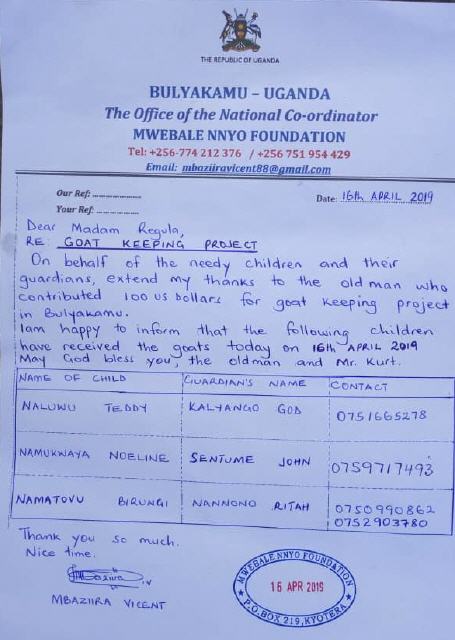 THE REPUBLIC OF UGANDA
BULYAKAMU – UGANDA
The Office of the National Co-ordinator
MWEBALE NNYO FOUNDATION
Tel: +256-774 212 376 / +256 751 954 429
Email: mbaziiravicent88@gmail.com
Our Ref: ..................
Date: 16th APRIL 2019
Your Ref: ..................
Dear Madam Regula,
RE: GOAT KEEPING PROJECT
On behalf of the needy children and their
guardians, extend my thanks to the old man who
contributed 100 US Dollars for goat keeping project
in Bulyakamu.
Iam happy to inform that the following children
have received the goats today on 16th APRIL 2019
May God bless you, the oldman and Mr. Kurt.
NAME OF CHILD GUARDIAN'S NAME CONTACT
NALUWU TEDDY KALYANGO GOD 0751665278
NAMUKWAYA NOELINE SENTUME JOHN 0759717493
NAMATOVU BIRUNGI NANNONO RITAH 0750990862
0752903780
Thank you so much.
Nice time.
MBAZIIRA VICENT
MWEBALE NNYO FOUNDATION
16 APR 2019
P.O. BOX 219, KYOTERA